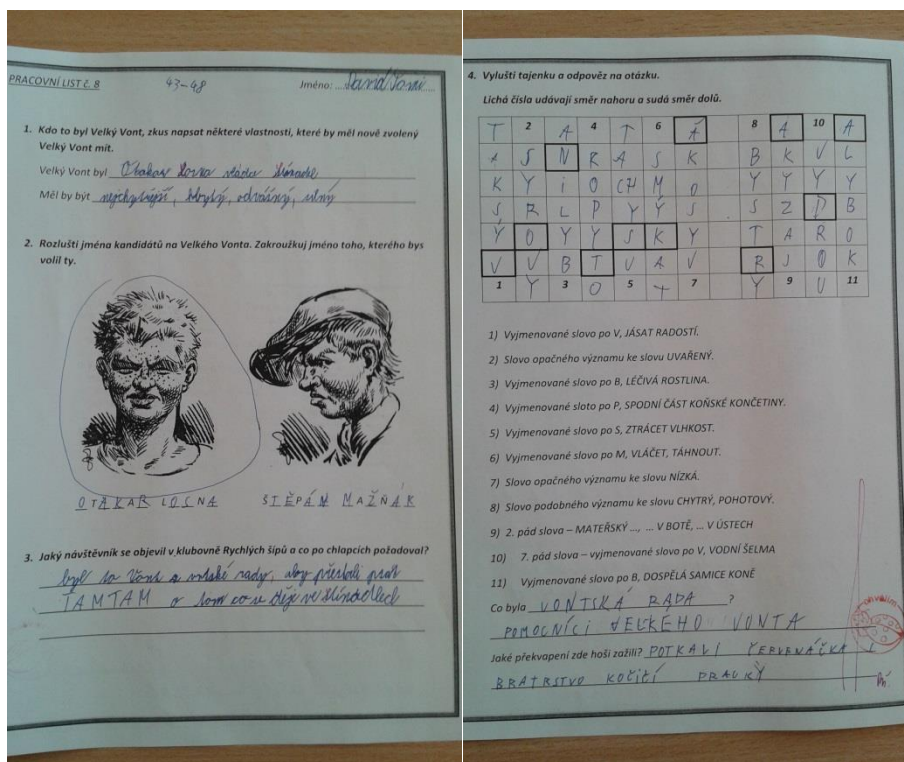 PRACOVNÍ LIST č. 8 43-48 Jméno:
1. Kdo to byl Velký Vont, zkus napsat některé vlastnosti, které by měl nově zvolený
Velký Vont mít.
Velký Vont byl Otakar Losna vládce Stínadel
Měl by být nejchytřejší, hbytý, odvážný, silný
2. Rozlušti jména kandidátů na Velkého Vonta. Zakroužkuj jméno toho, kterého bys
volil ty.
OTAKAR LOSNA ŠTĚPÁN MAŽŇÁK
3. Jaký návštěvník se objevil v klubovně Rychlých šípů a co po chlapcích požadoval?
byl to Vont z vontské rady, aby přestali psát
TAMTAM o tom co se děje ve Stínadlech
4. Vylušti tajenku a odpověz na otázku.
Lichá čísla udávají směr nahoru a sudá směr dolů.
T 2 A 4 T 6 Á 8 A 10 A
S N R A S K B K V L
K Y I O CH M O Y Y Y Y
S R L P Y Ý S S Z D B
Ý O Y Y S K Y T A R O
V V B T U A V R J O K
1 Y 3 O 5 T 7 Y 9 U 11
1) Vyjmenované slovo po V, JÁSAT RADOSTÍ.
2) Slovo opačného významu ke slovu UVAŘENÝ.
3) Vyjmenované slovo po B, LÉČIVÁ ROSTLINA.
4) Vyjmenované sloto po P, SPODNÍ ČÁST KOŇSKÉ KONČETINY.
5) Vyjmenované slovo po S, ZTRÁCET VLHKOST.
6) Vyjmenované slovo po M, VLÁČET, TÁHNOUT.
7) Slovo opačného významu ke slovu NÍZKÁ.
8) Slovo podobného významu ke slovu CHYTRÝ, POHOTOVÝ.
9) 2. pád slova – MATEŘSKÝ ..., ... V BOTĚ, ... V ÚSTECH
10) 7. pád slova – vyjmenované slovo po V, VODNÍ ŠELMA
11) Vyjmenované slovo po B, DOSPĚLÁ SAMICE KONĚ
Co byla VONTSKÁ RADA ?
POMOCNÍCI VELKÉHO VONTA
Jaké překvapení zde hoši zažili? POTKALI ČERVENÁČKA I
BRATRSTVO KOČIČÍ PRACKY